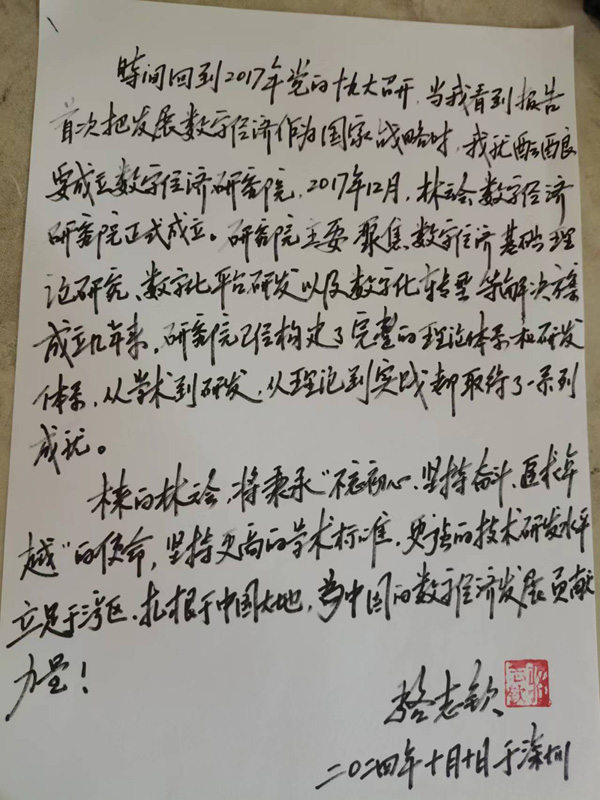 时间回到2017年党的十九大召开,当我看到报告
首次把发展数字经济作为国家战略时,我就酝酿
要成立数字经济研究院,2017年12月,林云数字经济
研究院正式成立。研究院主要聚焦数字经济基础理
论研究、数字化平台研发以及数字化转型等解决方案
成立几年来,研究院已经构建了完整的理论体系和研发
体系,从学术到研发,从理论到实践都取得了一系列
成就。
未来的林云,将秉承“不忘初心、坚持奋斗、追求卓
越”的使命,坚持更高的学术标准,更强的技术研发水平
立足于湾区,扎根于中国大地,为中国的数字经济发展贡献
力量!
志钦
二〇二四年十月十日于深圳